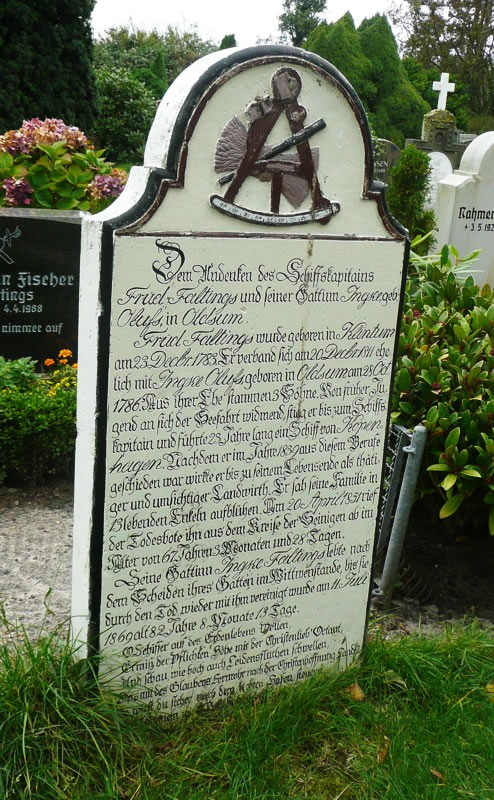 Dem Andenken des Schiffskapitains
Früd Faltings und seiner Gattinn Ingke, geb
Olufs, in Oldsum.
Früd Faltings wurde geboren in Klintum
am 23 Decbr. 1783. Er verband sich am 20 Decbr. 1811 ehe
lich mit Ingke Olufs geboren in Oldsum am 28 Oct
1786. Aus ihrer Ehe stammen 3 Söhne. Von früher Ju
gend an sich der Seefahrt widmend stieg er bis zum Schiffs
kapitain und führte 23 Jahre lang ein Schiff von Kopen
hagen. Nachdem er im Jahre 1839 aus diesem Berufe
geschieden war wirkte er bis zu seinem Lebensende als thäti
ger und umsichtiger Landwirth. Er sah seine Familie in
13 lebenden Enkeln aufblühen. Am 20 April 1851 rief
der Todesbote ihn aus dem Kreise der Seinigen ab im
Alter von 67 Jahren 3 Monaten und 28 Tagen.
Seine Gattinn Ingke Faltings lebte nach
dem Scheiden ihres Gatten im Wittwenstande, bis sie
durch den Tod wieder mit ihm vereinigt wurde am 11 Juli
1869 alt 82 Jahre 8 Monate 13 Tage.
O Schiffer auf des Erdenlebens Wellen,
der Pflichten Höhe mit der Christenlieb' Octant,
schau, wie hoch auch Leidensfluthen schwellen,
mit des Glaubens Fernrohr nach der Christenhoffnung
n Fischer
tings
4.4.1988
nimmer auf
Nahmen
+ 3.5.192